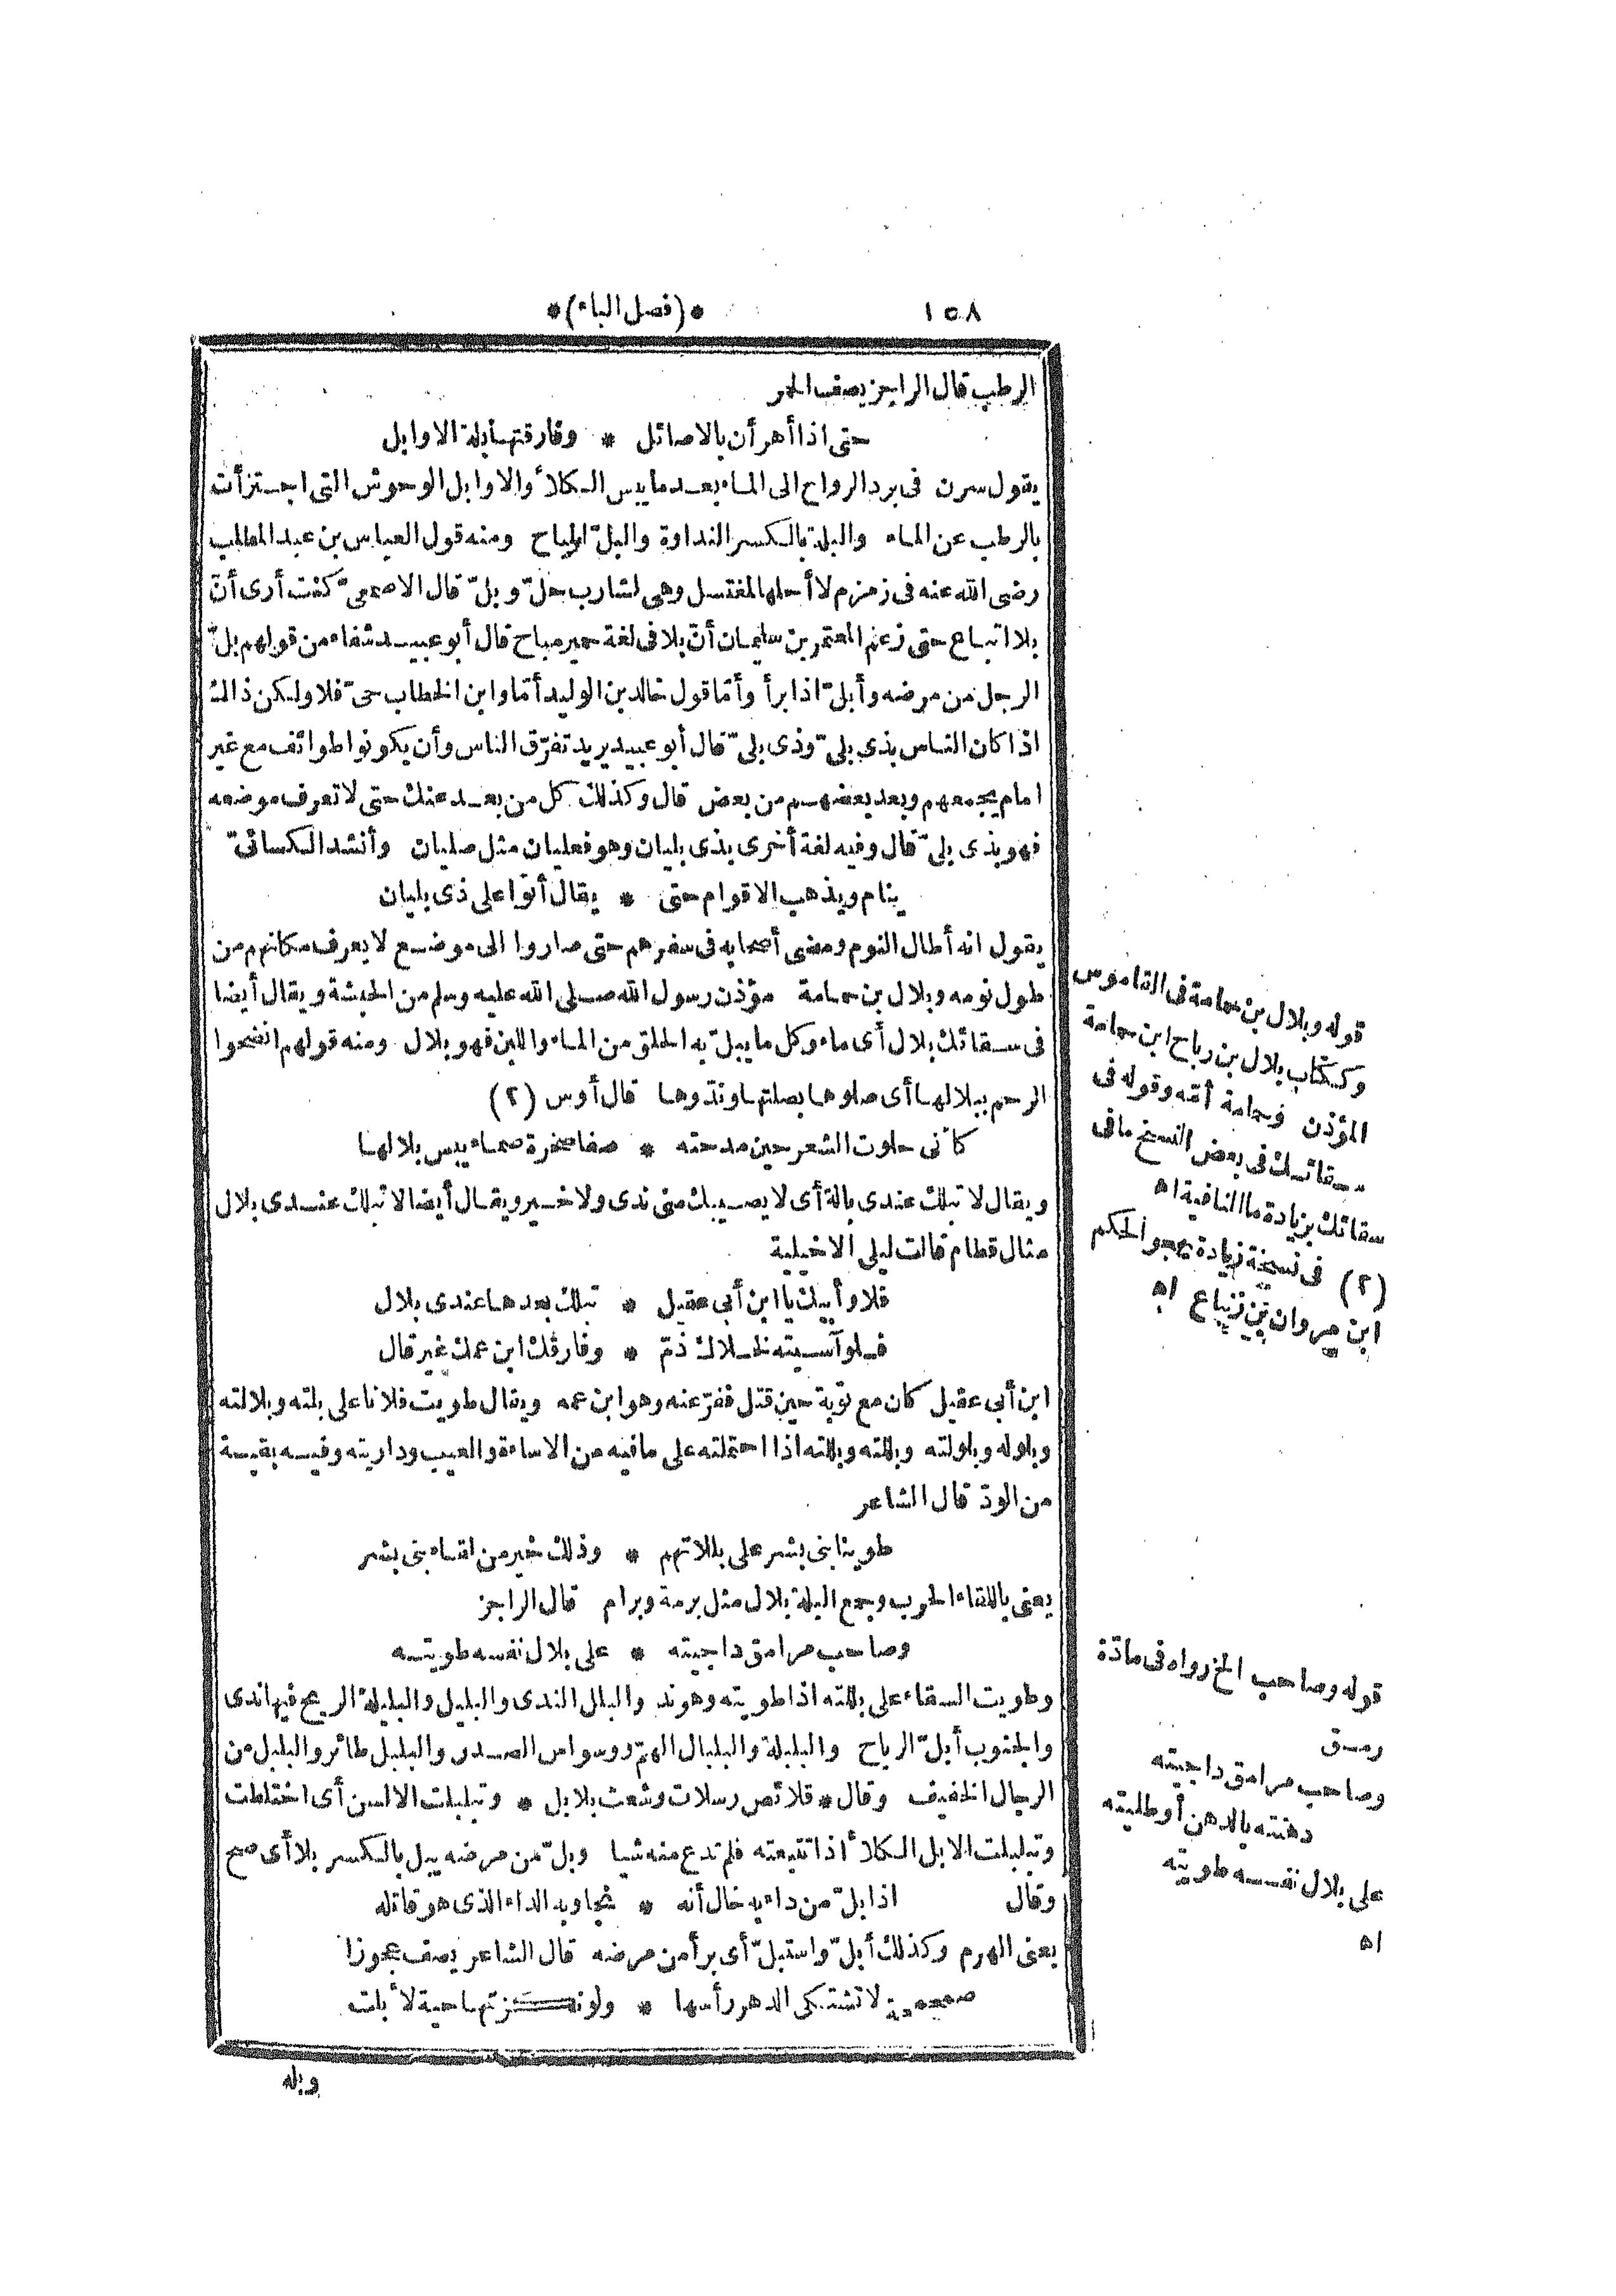 ١٥٨ *(فصل الباء)*
الرطب قال الراجز يصف الحمر
حتى اذا أهرأن بالاصائل * وفارقتها بلة الاوابل
يقول سرن فى برد الرواح الى الماء بعد ما يبس الكلأ والاوابل الوحوش التى اجتزأت
بالرطب عن الماء والبلة بالكسر النداوة والبلّ المباح ومنه قول العباس بن عبد المطلب
رضى الله عنه فى زمزم لا أحلها لمغتسل وهى لشارب حلّ وبلّ قال الاصمعىّ كنت أرى أنّ
بلا اتباع حتى زعم المعتمر بن سليمان أنّ بلا فى لغة حمير مباح قال أبو عبيد شفاء من قولهم بلّ
الرجل من مرضه وأبلّ اذا برأ وأمّا قول خالد بن الوليد أمّا وابن الخطاب حىّ فلا ولكن ذاك
اذا كان الناس بذى بلىّ وذى بلىّ قال أبو عبيد يريد تفرّق الناس وأن يكونوا طوائف مع غير
امام يجمعهم وبعد بعضهم من بعض قال وكذلك كل من بعد عنك حتى لا تعرف موضعه
فهو بذى بلىّ قال وفيه لغة أخرى بذى بليان وهو فعليان مثل صليان وأنشد الكسائىّ
ينام ويذهب الاقوام حتى * يقال أتوا على ذى بليان
يقول انه أطال النوم ومضى أصحابه فى سفرهم حتى صاروا الى موضع لا يعرف مكانهم من
طول نومه وبلال بن حمامة مؤذن رسول الله صلى الله عليه وسلم من الحبشة ويقال أيضا
فى سقائك بلال أى ماء وكل ما يبلّ به الحلق من الماء واللبن فهو بلال ومنه قولهم انضحوا
الرحم ببلالها أى صلوها بصلتها وندّوها قال أوس (٢)
كأنى حلوت الشعر حين مدحته * صفا صخرة صماء يبس بلالها
ويقال لا تبلك عندى بالة أى لا يصيبك منى ندى ولا خير ويقال أيضا لا تبلك عندى بلال
مثال قطام قالت ليلى الاخيلية
فلا وأبيك يا ابن أبى عقيل * تبلك بعدها عندى بلال
فلو آسيته لخلاك ذمّ * وفارقك ابن عمك غير قال
ابن أبى عقيل كان مع توبة حين قتل ففرّ عنه وهو ابن عمه ويقال طويت فلانا على بلته وبلالته
وبلوله وبلولته وبللته وبللته اذا احتملته على ما فيه من الاساءة والعيب وداريته وفيه بقية
من الودّ قال الشاعر
طوينا بنى بشر على بللاتهم * وذلك خير من لقاء بنى بشر
يعنى باللقاء الحرب وجمع البلة بلال مثل برمة وبرام قال الراجز
وصاحب مرامق داجيته * على بلال نفسه طويته
وطويت السقاء على بللته اذا طويته وهو ند والبلل الندى والبليل والبليلة الريح فيها ندى
والجنوب أبلّ الرياح والبلبلة والبلبال الهمّ ووسواس الصدر والبلبل طائر والبلبل من
الرجال الخفيف وقال * قلائص رسلات وشعث بلابل * وتبلبلت الالسن أى اختلطت
وتبلبلت الابل الكلأ اذا تتبعته فلم تدع منه شيا وبلّ من مرضه يبل بالكسر بلا أى صح
وقال اذا بلّ من داء به خال أنه * نجا وبه الداء الذى هو قاتله
يعنى الهرم وكذلك أبلّ واستبلّ أى برأ من مرضه قال الشاعر يصف عجوزا
صمحمحة لا تشتكى الدهر رأسها * ولو نكزتها حية لأبلت
وبله
قوله وبلال بن حمامة فى القاموس
وككتاب بلال بن رباح ابن حمامة
المؤذن وحمامة أمّه وقوله فى
سقائك فى بعض النسخ ما فى
سقائك بزيادة ما النافية اه
(٢) فى نسخة زيادة يهجو الحكم
ابن مروان بن زنباع اه
قوله وصاحب الخ رواه فى مادّة
رمق
وصاحب مرامق داجيته
دهنته بالدهن أو طليته
على بلال نفسه طويته
اه